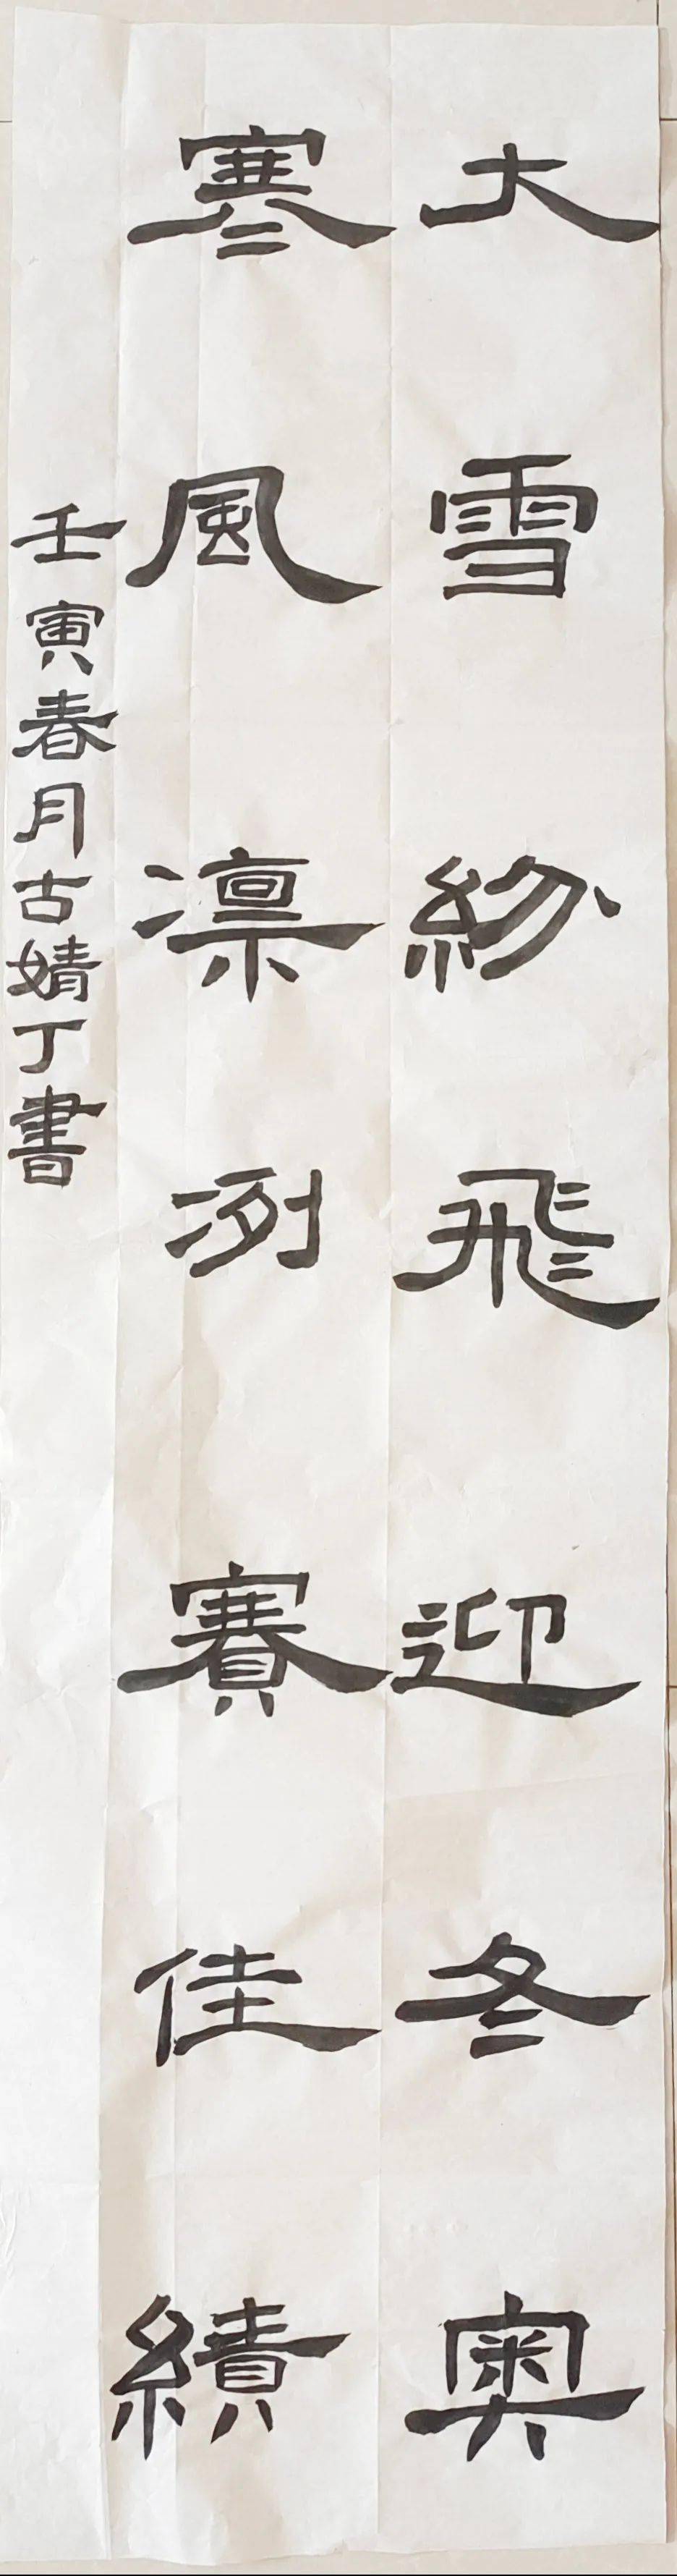 大雪紛飛迎冬奧
寒風凛冽賽佳績
壬寅春月古婧丁書